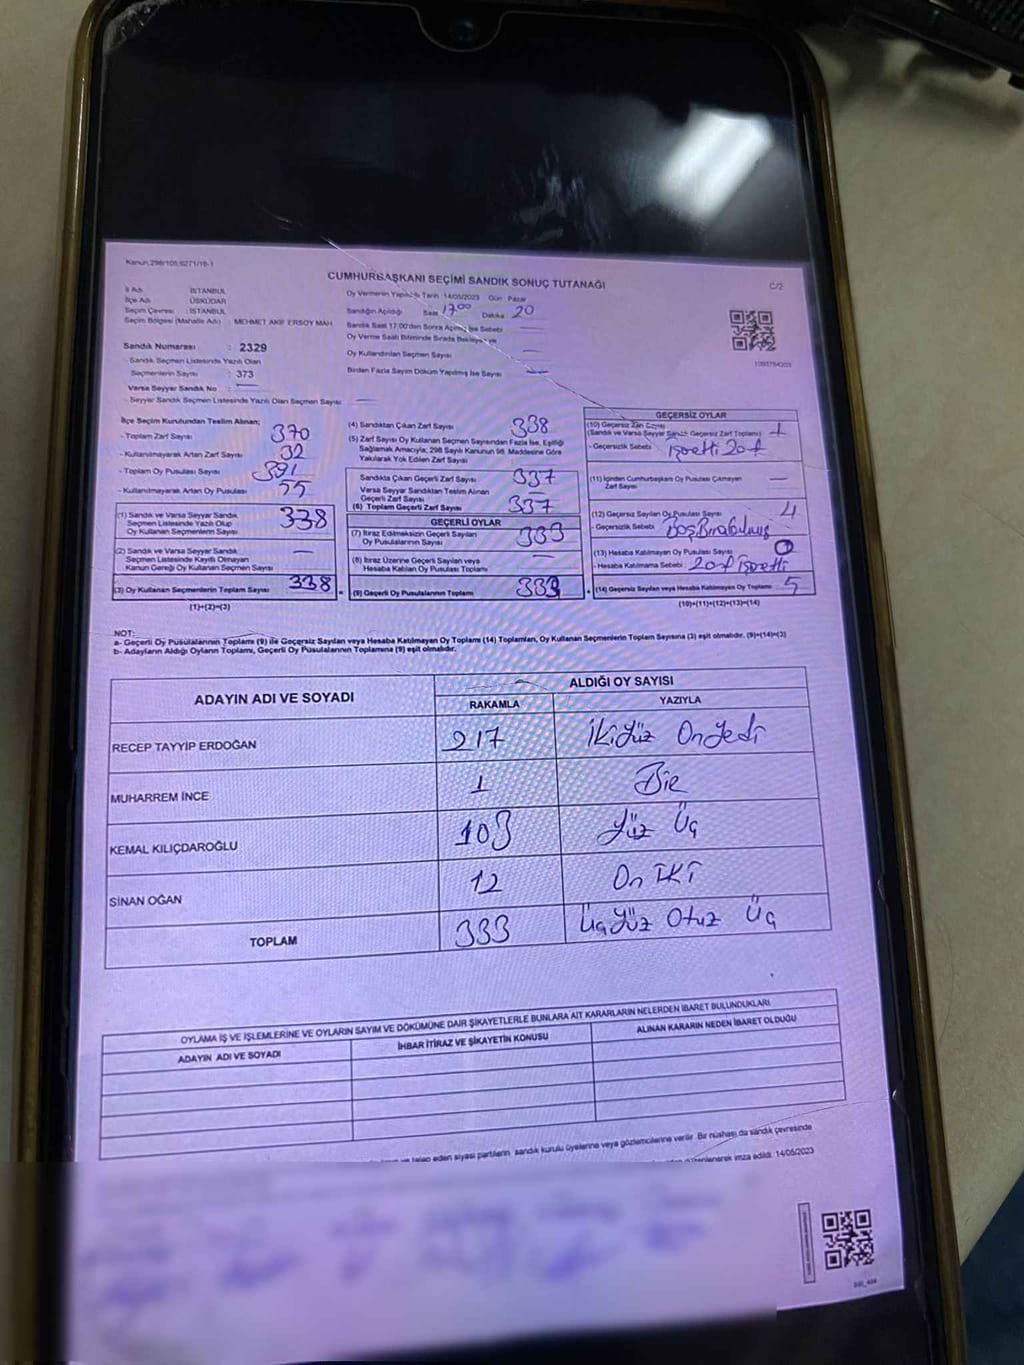 Kanun:298/105,6271/16-1
CUMHURBAŞKANI SEÇİMİ SANDIK SONUÇ TUTANAĞI
C/2
İl Adı : İSTANBUL
İlçe Adı : ÜSKÜDAR
Seçim Çevresi : İSTANBUL
Seçim Bölgesi (Mahalle Adı) : MEHMET AKİF ERSOY MAH.
Sandık Numarası : 2329
- Sandık Seçmen Listesinde Yazılı Olan
Seçmenlerin Sayısı : 373
Varsa Seyyar Sandık No : —
- Seyyar Sandık Seçmen Listesinde Yazılı Olan Seçmen Sayısı : —
Oy Vermenin Yapıldığı Tarih 14/05/2023 Gün : Pazar
Sandığın Açıldığı Saat 17.00 Dakika 20
Sandık Saat 17.00'den Sonra Açılmış İse Sebebi —
Oy Verme Saati Bitiminde Sırada Bekleyen ve
Oy Kullandırılan Seçmen Sayısı —
Birden Fazla Sayım Döküm Yapılmış İse Sayısı —
İlçe Seçim Kurulundan Teslim Alınan;
- Toplam Zarf Sayısı 370
- Kullanılmayarak Artan Zarf Sayısı 32
- Toplam Oy Pusulası Sayısı 391
- Kullanılmayarak Artan Oy Pusulası 55
(1) Sandık ve Varsa Seyyar Sandık
Seçmen Listesinde Yazılı Olup
Oy Kullanan Seçmenlerin Sayısı 338
(2) Sandık ve Varsa Seyyar Sandık
Seçmen Listesinde Kayıtlı Olmayan
Kanun Gereği Oy Kullanan Seçmen Sayısı —
(3) Oy Kullanan Seçmenlerin Toplam Sayısı 338
(1)+(2)=(3)
(4) Sandıktan Çıkan Zarf Sayısı 338
(5) Zarf Sayısı Oy Kullanan Seçmen Sayısından Fazla İse, Eşitliği
Sağlamak Amacıyla; 298 Sayılı Kanunun 98. Maddesine Göre
Yakılarak Yok Edilen Zarf Sayısı
Sandıkta Çıkan Geçerli Zarf Sayısı 337
Varsa Seyyar Sandıktan Teslim Alınan
Geçerli Zarf Sayısı —
(6) Toplam Geçerli Zarf Sayısı 337
GEÇERLİ OYLAR
(7) İtiraz Edilmeksizin Geçerli Sayılan
Oy Pusulalarının Sayısı 333
(8) İtiraz Üzerine Geçerli Sayılan veya
Hesaba Katılan Oy Pusulası Toplamı —
(9) Geçerli Oy Pusulalarının Toplamı 333
GEÇERSİZ OYLAR
(10) Geçersiz Zarf Sayısı
(Sandık ve Varsa Seyyar Sandık Geçersiz Zarf Toplamı) 1
- Geçersizlik Sebebi : işaretli zarf
(11) İçinden Cumhurbaşkanı Oy Pusulası Çıkmayan
Zarf Sayısı —
(12) Geçersiz Sayılan Oy Pusulası Sayısı 4
- Geçersizlik Sebebi Boş Bırakılmış
(13) Hesaba Katılmayan Oy Pusulası Sayısı
- Hesaba Katılmama Sebebi : zarf işaretli
(14) Geçersiz Sayılan veya Hesaba Katılmayan Oy Toplamı 5
(10)+(11)+(12)+(13)=(14)
NOT:
a- Geçerli Oy Pusulalarının Toplamı (9) ile Geçersiz Sayılan veya Hesaba Katılmayan Oy Toplamı (14) Toplamları, Oy Kullanan Seçmenlerin Toplam Sayısına (3) eşit olmalıdır. (9)+(14)=(3)
b- Adayların Aldığı Oyların Toplamı, Geçerli Oy Pusulalarının Toplamına (9) eşit olmalıdır.
ADAYIN ADI VE SOYADI
ALDIĞI OY SAYISI
RAKAMLA YAZIYLA
RECEP TAYYİP ERDOĞAN 217 İkiyüz Onyedi
MUHARREM İNCE 1 Bir
KEMAL KILIÇDAROĞLU 103 Yüz Üç
SİNAN OĞAN 12 On İki
TOPLAM 333 Üçyüz Otuz Üç
OYLAMA İŞ VE İŞLEMLERİNE VE OYLARIN SAYIM VE DÖKÜMÜNE DAİR ŞİKAYETLERLE BUNLARA AİT KARARLARIN NELERDEN İBARET BULUNDUKLARI
ADAYIN ADI VE SOYADI
İHBAR İTİRAZ VE ŞİKAYETİN KONUSU
ALINAN KARARIN NEDEN İBARET OLDUĞU
ve talep eden siyasi partilerin sandık kurulu üyelerine veya gözlemcilerine verilir. Bir nüshası da sandık çevresinde
imza edildi. 14/05/2023